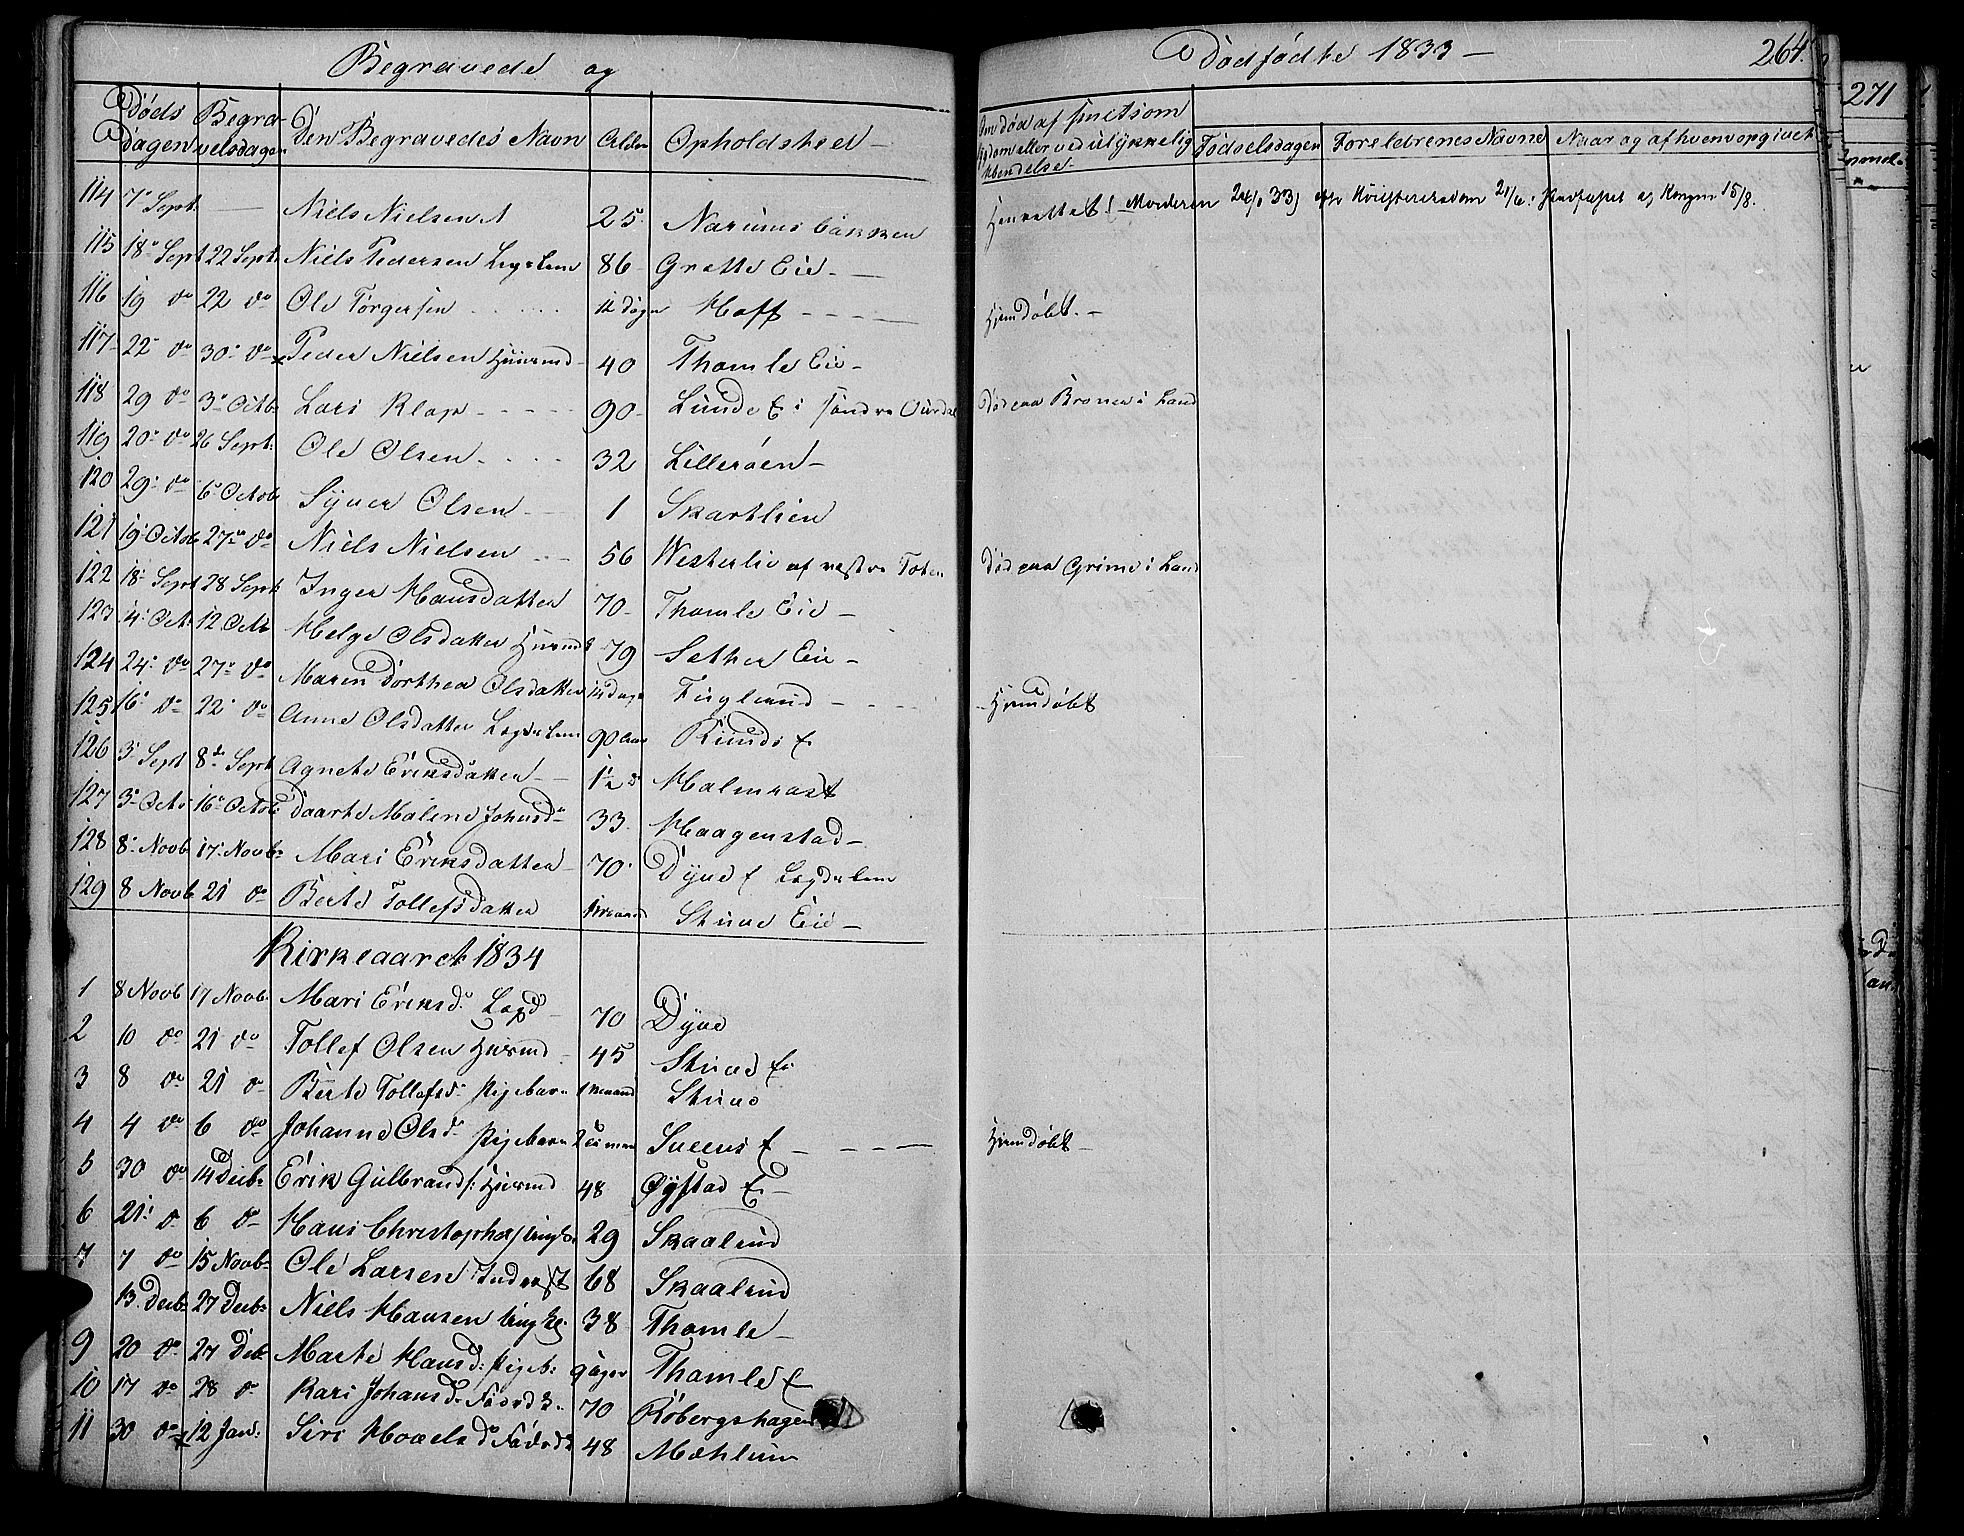 Begravede og Dødfødte 1833 - 264.
271
Døds dagen Begra- velsdagen Den Begravedes Navn Alder Opholdsteed -
Fødselsdagen Foreldrenes Navne Naar og af hvem opgivet
114 7de Sept: Niels Nielsen 25 Narums bakken Henrettet
115 18de Sept 22 Sept: Niels Pedersen Legdslem 86 Grette Eie -
116 19 do 22 do Ole Torgersen 12 døgn Hoff - Hjemdøbt. -
117 22de do 30 do Peder Nielsen Huusmd 40 Thomle Eie -
118 29 do 3de Octb Lars Klop 90 Lunde E i søndre Ourdal Død paa Brones i Land
119 20 do 26 Sept: Ole Olsen 32 Lillerøen -
120 29 do 6 Octob Syver Olsen 1 Skartlien
121 19 Octob 27 do Niels Nielsen 56 Westerlie af vestre Toten Død paa Grime i Land
122 18 Sept 28 Sept Inger Hansdatter 70 Thomle Eie -
123 4 Oct. 12 Octb Helge Olsdatter Huusmd 79 Sether Eie -
124 24 do 27 do Maren Dorthea Olsdatter 14 dage Fuglund - Hjemdøbt
125 16 do 22 do Anne Olsdatter Legdslem 90 aar Runds E
126 3 Sept 8de Sept Agnete Eriksdatter 1½ Halmrast
127 3 Octo 16 Octob Daarte Malene Johnsd 33 Haagenstad -
128 8 Novb 17 Novb: Mari Eriksdatter 70 Dyne E Legdslem
129 8 Novb 21 do Berte Tollefsdatter 1 Maaned Stuue Eie -
Kirkeaaret 1834
1 8 Novb 17 Novb: Mari Eriksd: Legd 70 Dyne
2 10 do 21 do Tollef Olsen Huusmd 45 Stuue E
3 8 do 21 do Berte Tollefsd: Pigebarn 1 Maaned Stuue
4 4 do 6 do Johanne Olsd: Pigebarn 2 Sueens E - Hjemdøbt -
5 30 do 14 Decb: Erik Gulbrands: Huusmd 48 Øystad E -
6 21 do 6 do Hans Christophers Ungk: 29 Skaalrud
7 7 do 15 Novb Ole Larsen Inderst 68 Skaalrud
13 Decb: 27 Decb: Niels Hansen Ungk. 38 Thomle -
9 20 do 27 Deb Marte Hansd: Pigeb: 9 uger Thomle E
10 17 do 28 do Kari Johansd: 70 Røbergshagen
11 30 do 12 Jan: Siri Hovelsd 48 Mæhlum